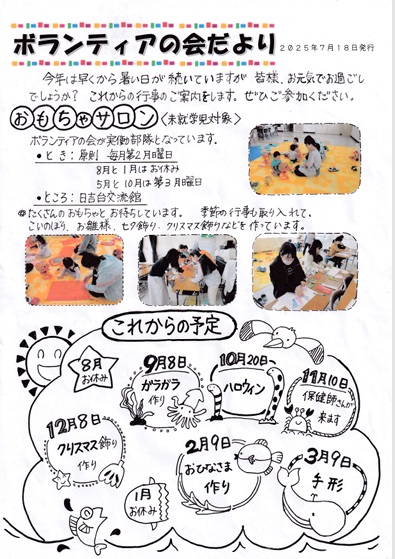 ボランティアの会だより
2025年7月18日発行
今年は早くから暑い日が続いていますが 皆様、お元気でお過ごし
でしょうか? これからの行事のご案内をします。ぜひご参加ください。
おもちゃサロン〈未就学児対象〉
ボランティアの会が実働部隊となっています。
・とき:原則 毎月第2月曜日
8月と1月はお休み
5月と10月は第3月曜日
・ところ:日吉台交流館
@たくさんのおもちゃとお待ちしています。 季節の行事も取り入れて、
こいのぼり、お雛様、七夕飾り、クリスマス飾りなどを作っています。
これからの予定
8月
お休み
9月8日
ガラガラ
作り
10月20日
ハロウィン
11月10日
保健師さんが
来ます
12月8日
クリスマス飾り
作り
1月
お休み
2月9日
おひなさま
作り
3月9日
手形